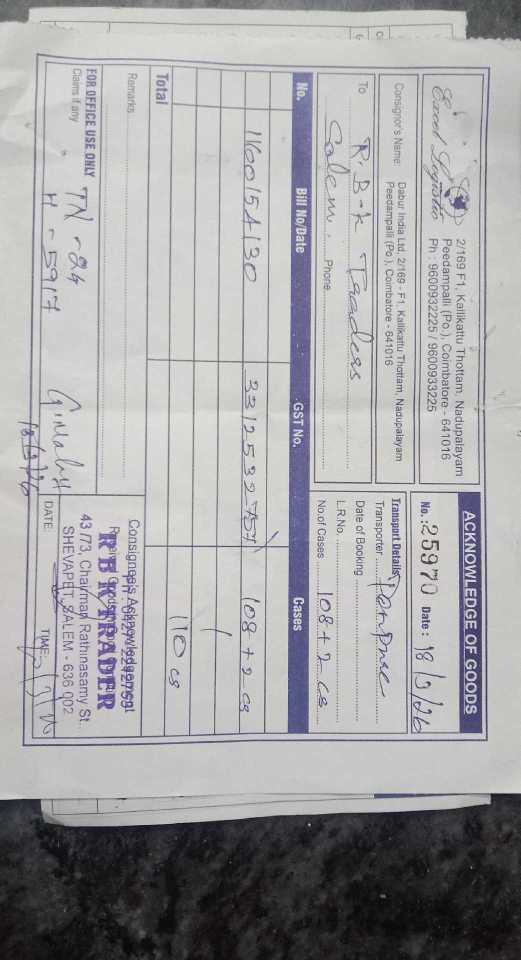 ACKNOWLEDGE OF GOODS
Excel Logistics
2/169 F1, Kallikattu Thottam, Nadupalayam
Peedampalli (Po.), Coimbatore - 641016
Ph : 9600932225 / 9600933225
No.: 25970 Date : 18/3/26
Consignor's Name: Dabur India Ltd. 2/169 - F1, Kallikattu Thottam, Nadupalayam
Peedampalli (Po.), Coimbatore - 641016
To R. B. K Traders
Salem. Phone
Transport Details
Transporter
Date of Booking
L.R.No.
No.of Cases 108 + 2 cs
No. Bill No/Date GST No. Cases
1160154130 3312532757 108 + 2 cs
Total 110 cs
Remarks
Consignee's Acknowledgement
PH : 0427-2292759
R B K TRADER
43 /73, Chairman Rathinasamy St.
SHEVAPET, SALEM - 636 002
FOR OFFICE USE ONLY
Claims if any TN - 24
H - 5917
18/3/26
DATE: TIME: